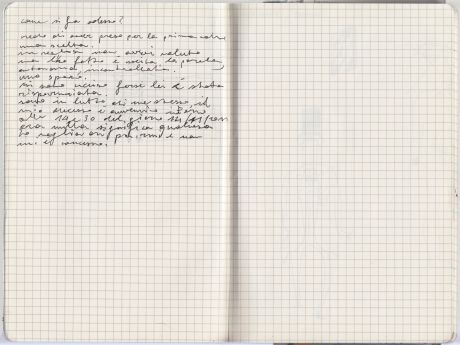 come si fa adesso?
credo di aver preso per la prima volta
una scelta.
in realtà non avrei voluto
ma l'ho fatto è uscita la parola
autonoma, incontrollata.
uno sparo.
mi sono ucciso forse lei è stata
risparmiata.
sono in lutto di me stesso il
mio decesso è avvenuto
alle 14 e 30 del giorno
ora nulla significa qualcosa
o non
mi è concesso.